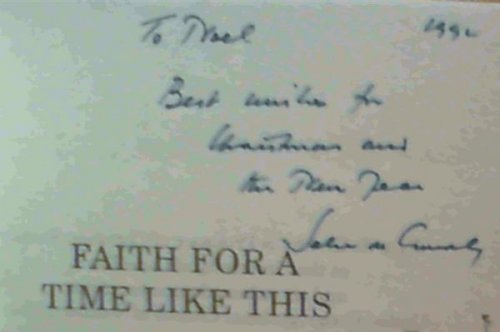 To Noel 1992
Best wishes for
Christmas and
the New Year
John
FAITH FOR A
TIME LIKE THIS